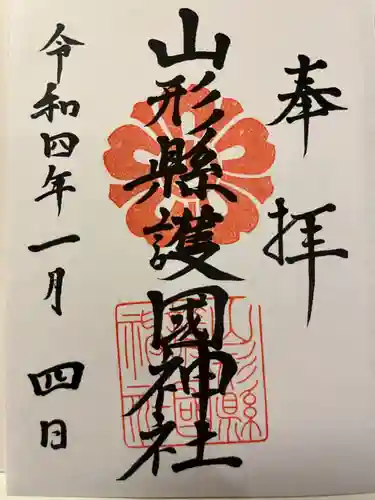 奉拝
山形縣護國神社
令和四年一月四日